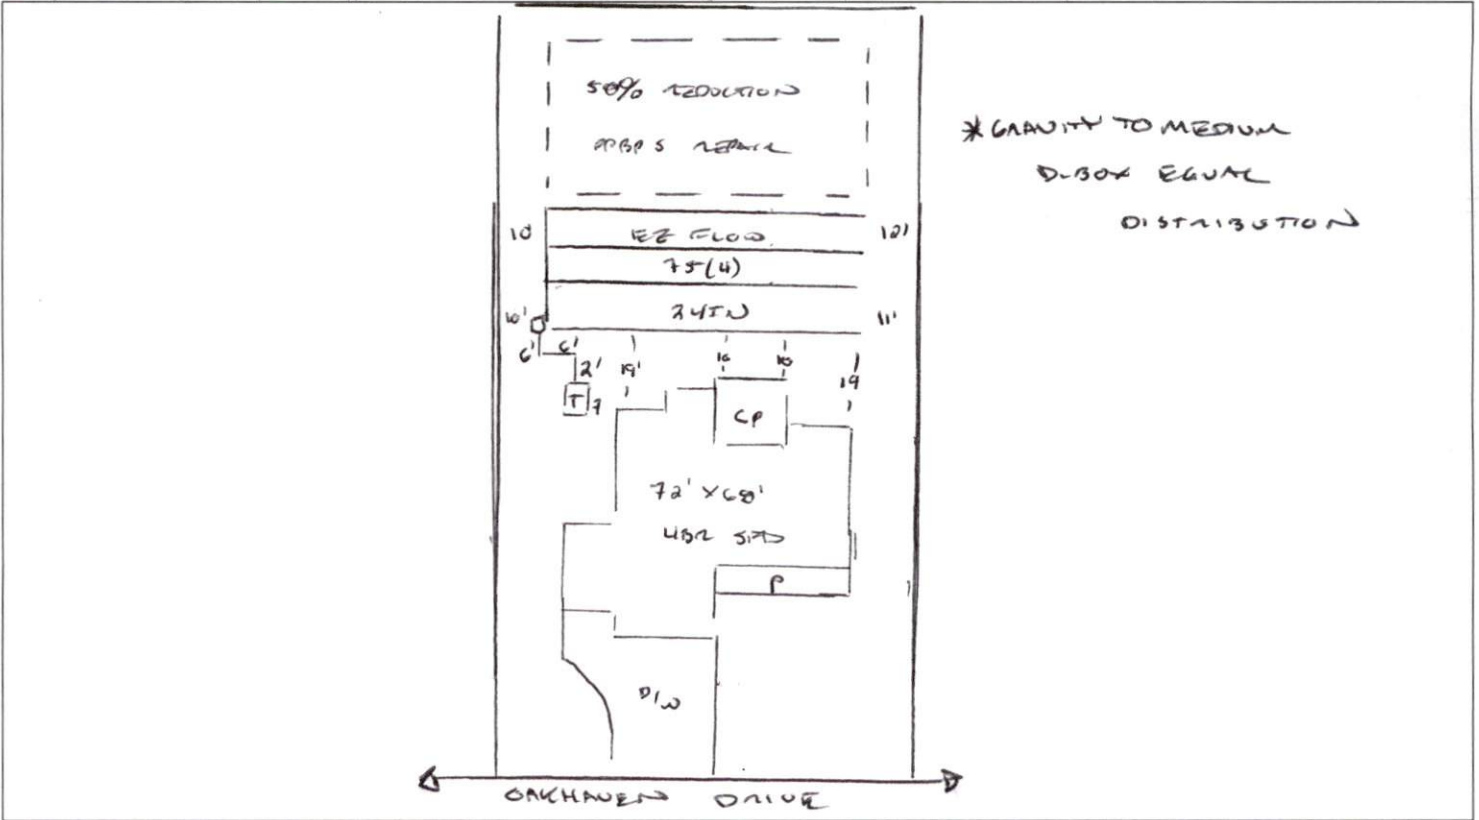 50% REDUCTION
PPBPS REPAIR
*GRAVITY TO MEDIUM
D-BOX EQUAL
DISTRIBUTION
10' EZ FLOW 12'
75(4)
10' 24IN 11'
6' 6' 2' 19' 16 18 19
T 7
CP
72' X 68'
4BR SFD
P
D/W
OAKHAVEN DRIVE